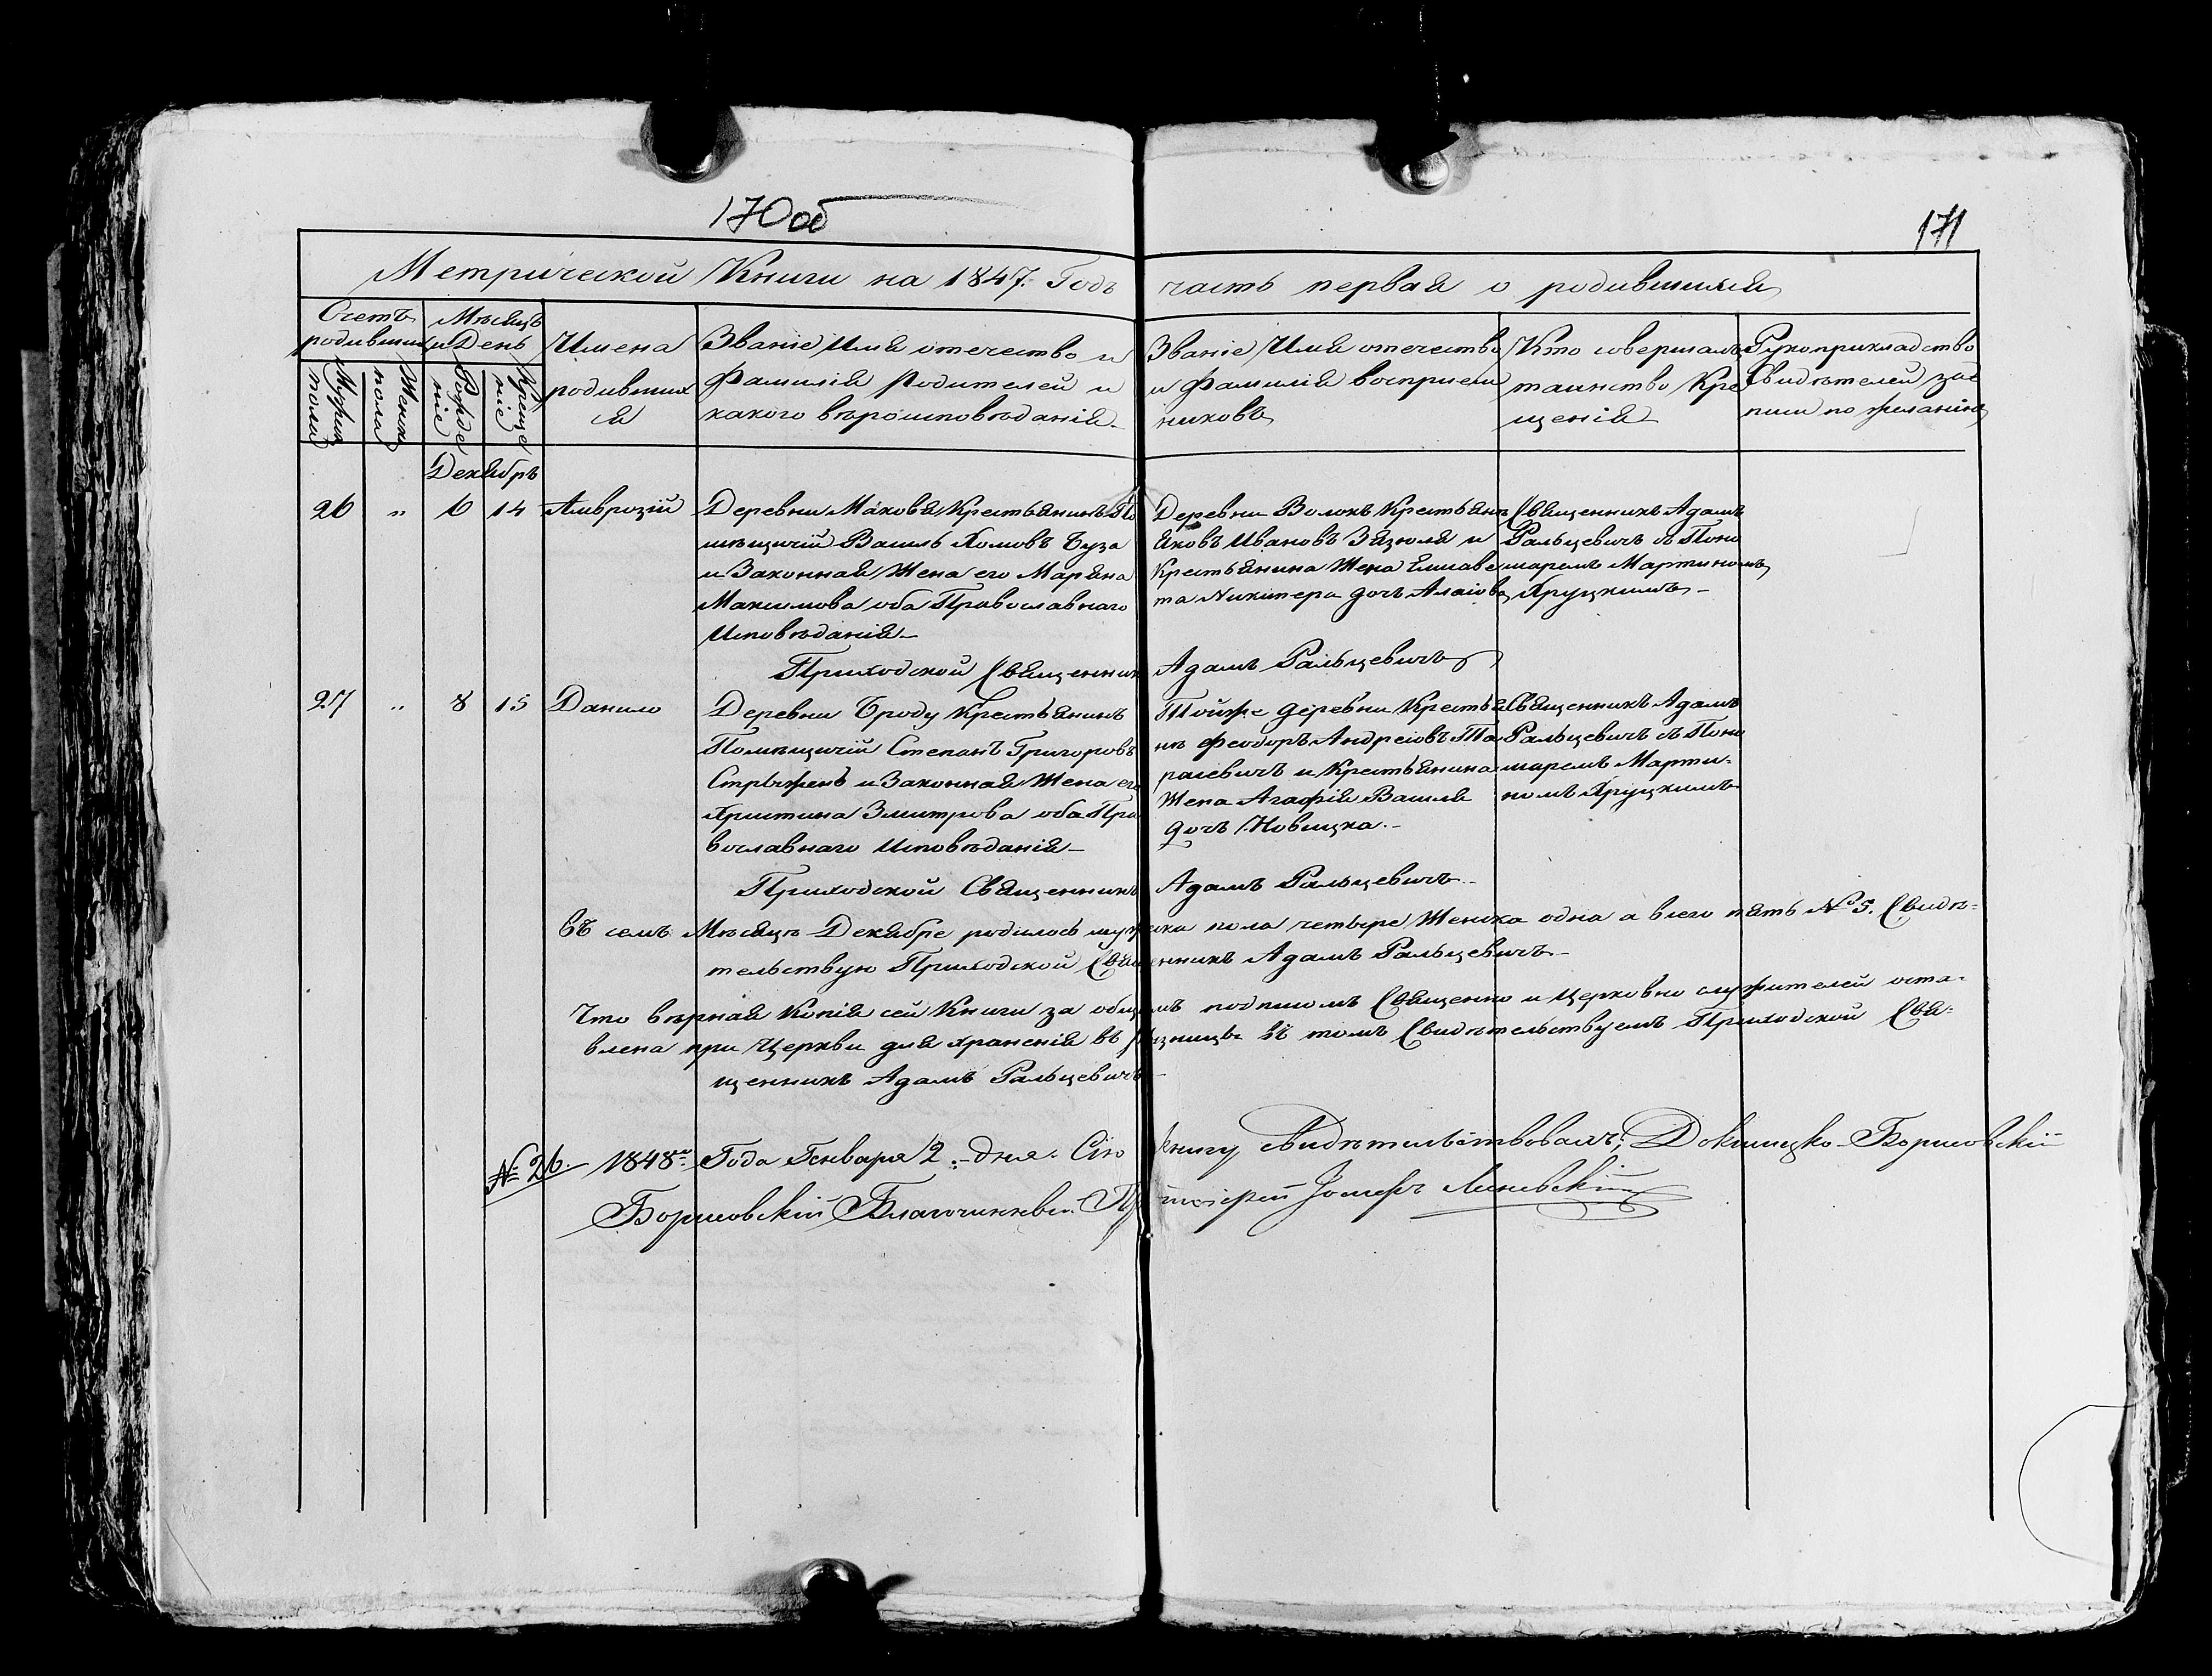 170об
171
Метрической Книги на 1847. Годъ часть первая о родившихся
Счетъ родившихъ
Мужск пола
Женск пола
Мѣсяцъ и День
Рожде ніе
Креще ніе
Имена
родивших
ся
Званіе Имя отечество и
Фамилія Родителей и
какого вѣроисповѣданія
Званіе Имя отечество
и Фамилія воспріем
никовъ
Кто совершалъ
таинство Кре
щенія
Рукоприкладство
Свидѣтелей зас
писи по желанію
Декабрь
26 " 6 14 Амврозій
Деревни Макова Крестьянинъ По
мѣщичій Василь Хомовъ Буза
и Законная Жена его Маряна
Максимова оба Православнаго
Исповѣданія
Деревни Волокъ Крестьянъ
Яковъ Ивановъ Зязюля и
Крестьянина Жена Елисаве
та Никипера дочь
Священникъ Адамъ
Ральцевичъ съ Поно
маремъ Мартиномъ
Хруцкимъ
Приходской Священникъ Адамъ Ральцевичъ
27 " 8 15 Данило
Деревни Броду Крестьянинъ
Помѣщичій Степанъ Григоровъ
Стрыженъ и Законная Жена его
Христина Змитрова оба Пра
вославнаго Исповѣданія
Тойже деревни Крестья
нъ Феодоръ Андреіовъ Та
расевичъ и Крестьянина
Жена Агафія Василя
дочь Новицка
Священникъ Адамъ
Ральцевичъ съ Поно
маремъ Марти-
номъ Хруцкимъ
Приходской Священникъ Адамъ Ральцевичъ
Въ семъ Мѣсяцѣ Декабре родилось мужска пола четыре Женска одна а всего пять № 5. Свидѣ-
тельствую Приходской Священникъ Адамъ Ральцевичъ
Что вѣрная Копія сей Книги за общимъ подписомъ Священно и Церковно служителей оста-
влена при Церкви для храненія въ ризницѣ въ томъ Свидѣтельствуемъ Приходской Свя-
щенникъ Адамъ Ральцевичъ
№ 26. 1848го Года Генваря 2. дня. Сію книгу Свидѣтельствовалъ, Докшицко-Борисовскій
Борисовскій Благочинный Протоіерей Іосифъ